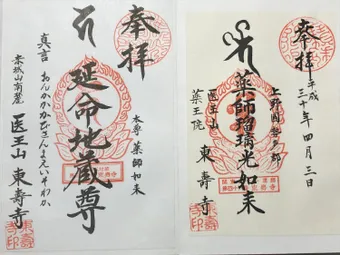 奉拝
平成
三十年四月三日
上野國勢多郡
薬師瑠璃光如来
医王山
薬王院
東壽寺
奉拝
本尊 薬師如来
延命地蔵尊
真言 おんかかかびさんまえいそわか
赤城山南麓
医王山 東壽寺